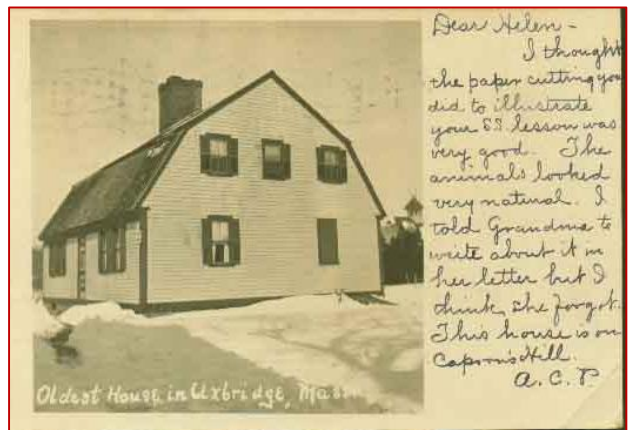 Dear Helen -
I thought
the paper cutting you
did to illustrate
your S.S. lesson was
very good. The
animals looked
very natural. I
told Grandma to
write about it in
her letter but I
think she forgot.
This house is on
Capron's Hill.
A. C. P.
Oldest House in Uxbridge, Mass